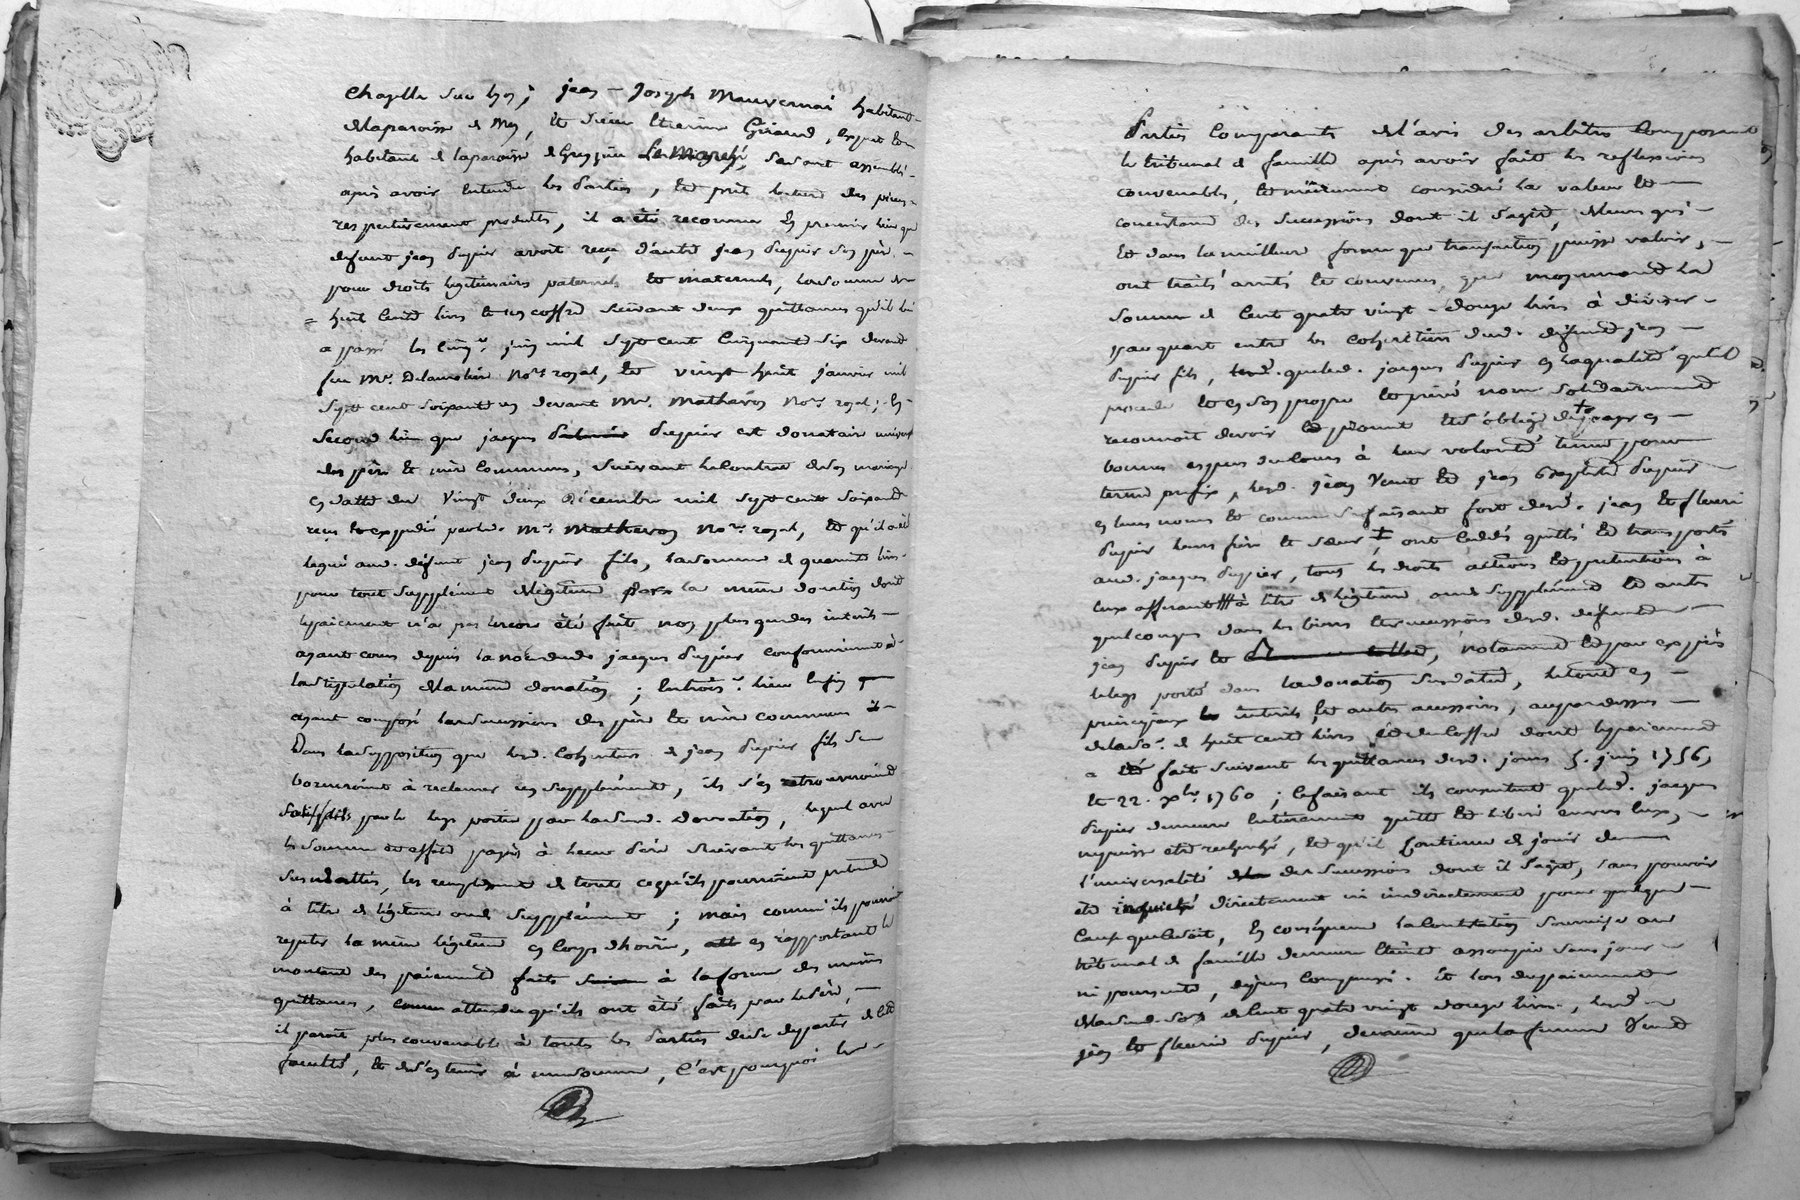 Chapelle sur ; jean-Joseph Mauvernai habitant
de la paroisse de , et sieur Etienne Giraud, expert
habitant de la paroisse de Grezieu Le Marché, sesont assemblés
après avoir entendu les parties, et prit lecture des pieces
respectivement produites, il a été reconnu En premier lieu que
defunt jean dupuir avoit reçu d'autre jean dupuir son père
pour droits legitimaires paternels et maternels, la somme de
huit Cents livres et un coffre suivant deux quittances qu'il lui
a passé les cinq juin mil sept cent Cinquante six devant
feu Me. Delamolière Nore royal, et vingt huit janvier mil
Sept cent soixante un devant Me. Matheron Nore royal; En
Second lieu que jacques dupuir est donataire universel
des père et mère communs, suivant le contrat de son mariage
en datte du Vingt deux décembre mil sept cent soixante
reçu et expédié par led. Me. Matheron Nore royal, et qu'il a été
legué aud. défunt jean dupuir fils, la somme de quarante livres
pour tout supplément de légitime par la même donation dont
le paiement n'a pas encore été fait non plus que des intérêts
ayant cours depuis la noce dud. jacques dupuir conformément à
la stipulation de la même donation ; lieu Enfin
ayant composé les successions des père et mère communs
Dans la supposition que les d. Cohéritiers de jean dupuir fils se
borneroient à reclamer un supplément, ils s'en retrouveroient
satisfaits par le legs porté par la susd. donation, lequel avec
la somme et effets payés à leur père suivant les quittances
sus dattées, les remplissent de tout ce qu'ils pourroient prétendre
à titre de légitime ou de supplément ; mais comme ils pourroient
repeter la même légitime en Corps d'hoirie, en rapportant le
montant des paiements faits à la forme des mêmes
quittances, attendu qu'ils ont été faits par le père,
il paroit plus convenable à toutes les Parties de se départir de cette
faculté, et de s'en tenir à une somme, C'est pourquoi les
Parties Comparants de l'avis des arbitres Composant
le tribunal de famille après avoir fait les reflexions
convenables, et mûrement considéré la valeur et
consistance des successions dont il s'agit, de leurs gré
Et dans la meilleure forme que transaction puisse valoir,
ont traité arrêté et convenus, que moyennant la
somme de Cent quatre vingt-douze livres à diviser
par quart entre les Cohéritiers dud. défunt jean
dupuir fils, que led. jacques dupuir en la qualité qu'il
procède et en son propre et privé nom solidairement
reconnoit devoir promet et s'oblige de payer en
bonnes espèces de cours à leur volonté
terme préfix, les d. jean Venet et jean dupuir
en leurs noms et comme se faisant fort desd. jean et fleurie
dupuir leurs frère et sœur ‡ ont cédé quitté et transporté
aud. jacques dupuir, tous les droits actions et prétentions à
eux afferants à titre de légitime ou de supplément et autres
quelconques dans les biens et successions desd. défunts
jean dupuir et , notamment et par exprès
le legs porté dans la donation susdatée, le tout en
principaux intérêts et autres accessoires, au par dessus
de la so. de huit cents livres et du Coffre dont le paiement
a été fait suivant les quittances desd. jours 5. juin 1756,
et 22. Xbre 1760 ; ce faisant ils consentent que led. jacques
dupuir demeure Entièrement quitte et libéré envers eux,
ne puisse etre recherché, et qu'il Continue de jouir de
l'universalité des successions dont il s'agit, sans pouvoir
etre inquiété directement ni indirectement pour quelque
Cause que ce soit, En conséquence la Contestation soumise au
tribunal de famille demeure éteinte assoupie sans jour
ni poursuite, dépens compensés. Et lors du paiement
de la susd. so de Cent quatre vingt douze livres, les d.
jean et fleurie dupuir, que la femme Venet